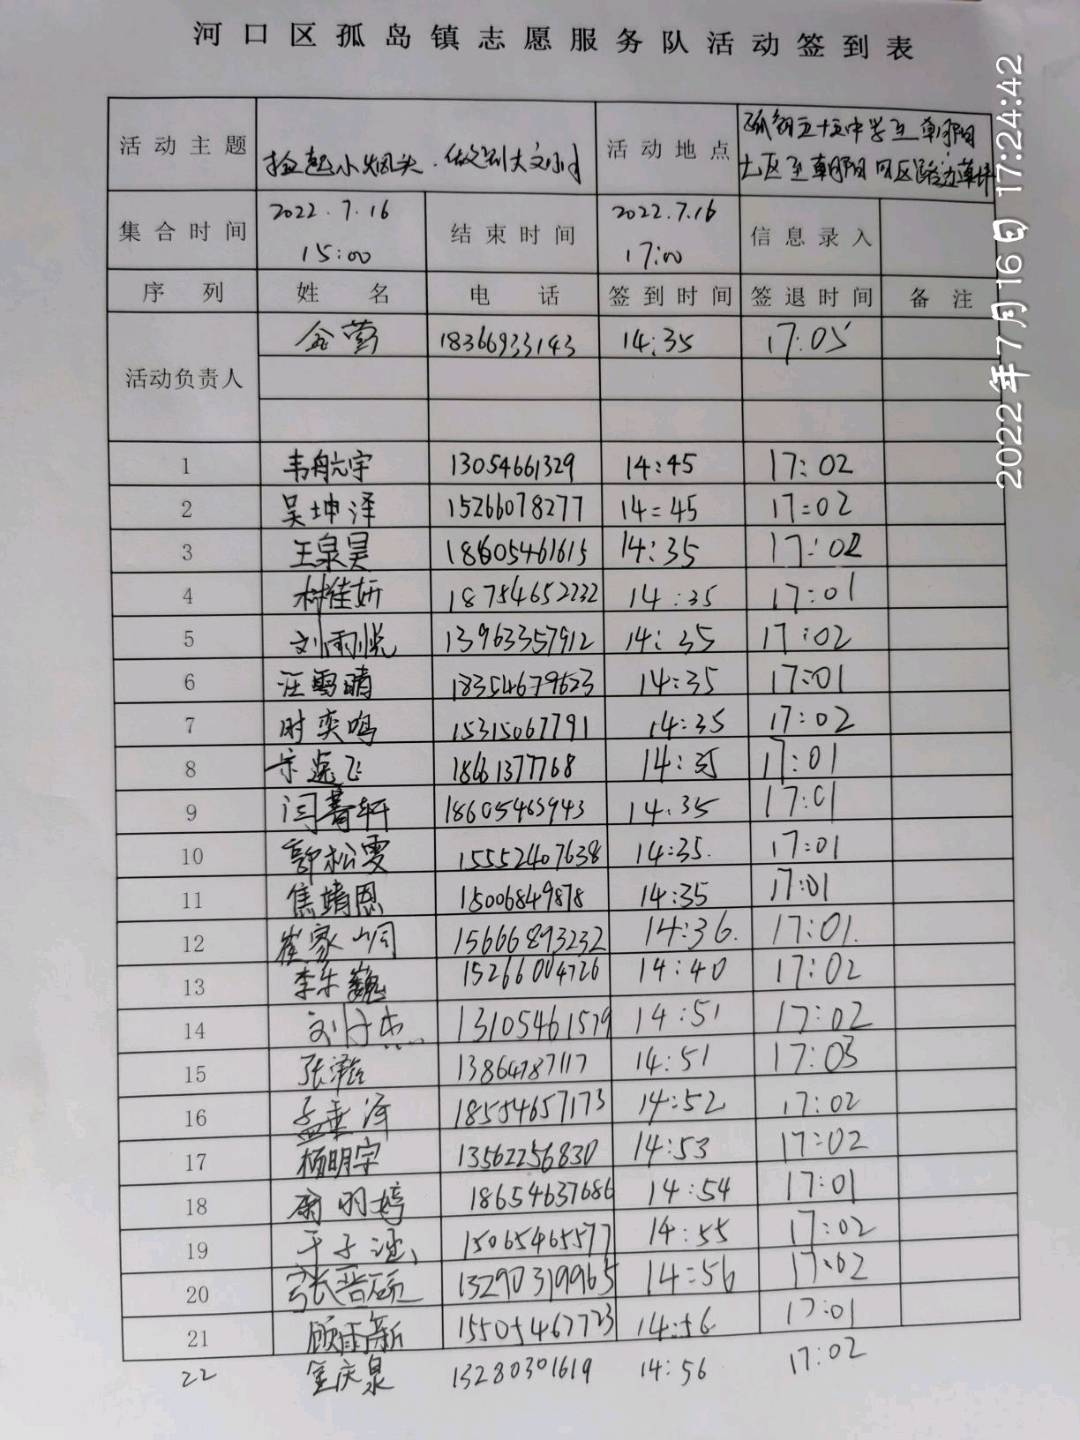 河口区孤岛镇志愿服务队活动签到表
活动主题 捡起小烟头. 活动地点
集合时间 2022.7.16 15:00 结束时间 2022.7.16 17:00 信息录入
序列 姓名 电话 签到时间 签退时间 备注
活动负责人 18366933143 14:35 17:05
1 韦航宇 13054661329 14:45 17:02
2 吴坤泽 15266078277 14:45 17:02
3 王泉昊 18605461615 14:35 17:02
4 林佳妍 18754652232 14:35 17:01
5 刘雨悦 13963357912 14:35 17:02
6 汪雪晴 18354679623 14:35 17:01
7 时奕鸣 15315067791 14:35 17:02
8 18661377768 14:35 17:01
9 闫菁轩 18605463943 14:35 17:01
10 郭松雯 15552407638 14:35. 17:01
11 焦靖恩 15006849878 14:35 17:01
12 崔家峒 15666893232 14:36. 17:01.
13 李乐巍 15266004726 14:40 17:02
14 13105461579 14:51 17:02
15 张滋 13864787117 14:51 17:03
16 孟垂泽 18554657173 14:52 17:02
17 杨明宇 13562256830 14:53 17:02
18 18654637686 14:54 17:01
19 15065465577 14:55 17:02
20 张晋硕 13290319965 14:56 17:02
21 顾雨新 15505467723 14:56 17:01
22 金庆泉 13280301619 14:56 17:02
2022年7月16日 17:24:42